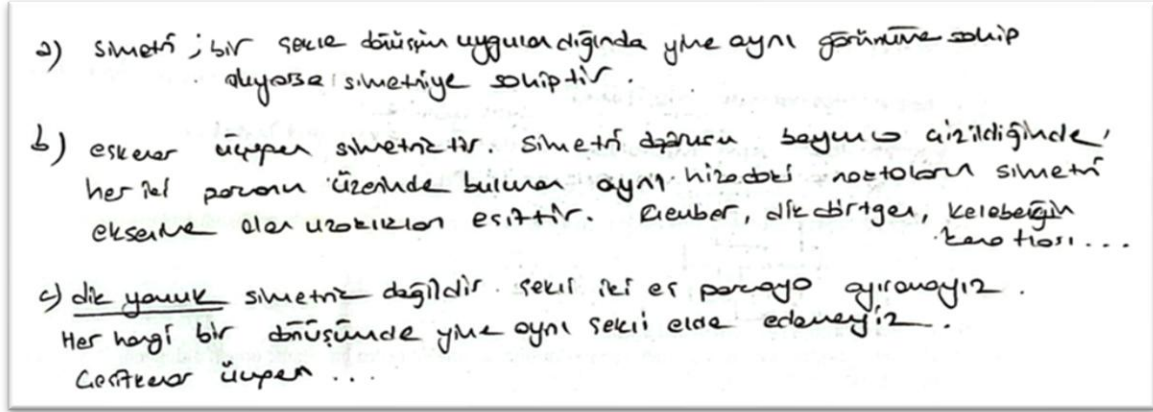 a) Simetri ; bir şekle dönüşüm uygulandığında yine aynı görünüme sahip
oluyorsa simetriye sahiptir .
b) eşkenar üçgen simetriktir. Simetri doğrusu boyunca çizildiğinde ,
her iki parçanın üzerinde bulunan aynı hizadaki noktaların simetri
eksenine olan uzaklıkları eşittir. Çember, dikdörtgen, kelebeğin
kanatları ...
c) dik yamuk simetrik değildir. Şekli iki eş parçaya ayıramayız .
Her hangi bir dönüşümde yine aynı şekli elde edemeyiz .
Çeşitkenar üçgen ...